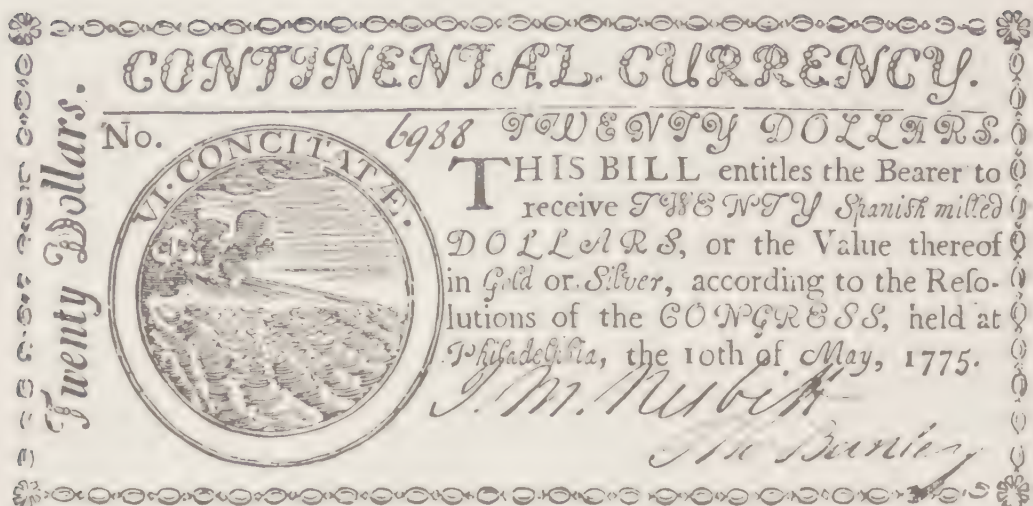 CONTINENTAL CURRENCY.
Twenty Dollars.
No. 6988 TWENTY DOLLARS.
VI·CONCITATÆ.
THIS BILL entitles the Bearer to
receive TWENTY Spanish milled
DOLLARS, or the Value thereof
in Gold or Silver, according to the Reſo-
lutions of the CONGRESS, held at
Philadelphia, the 10th of May, 1775.
J. M. Nesbitt